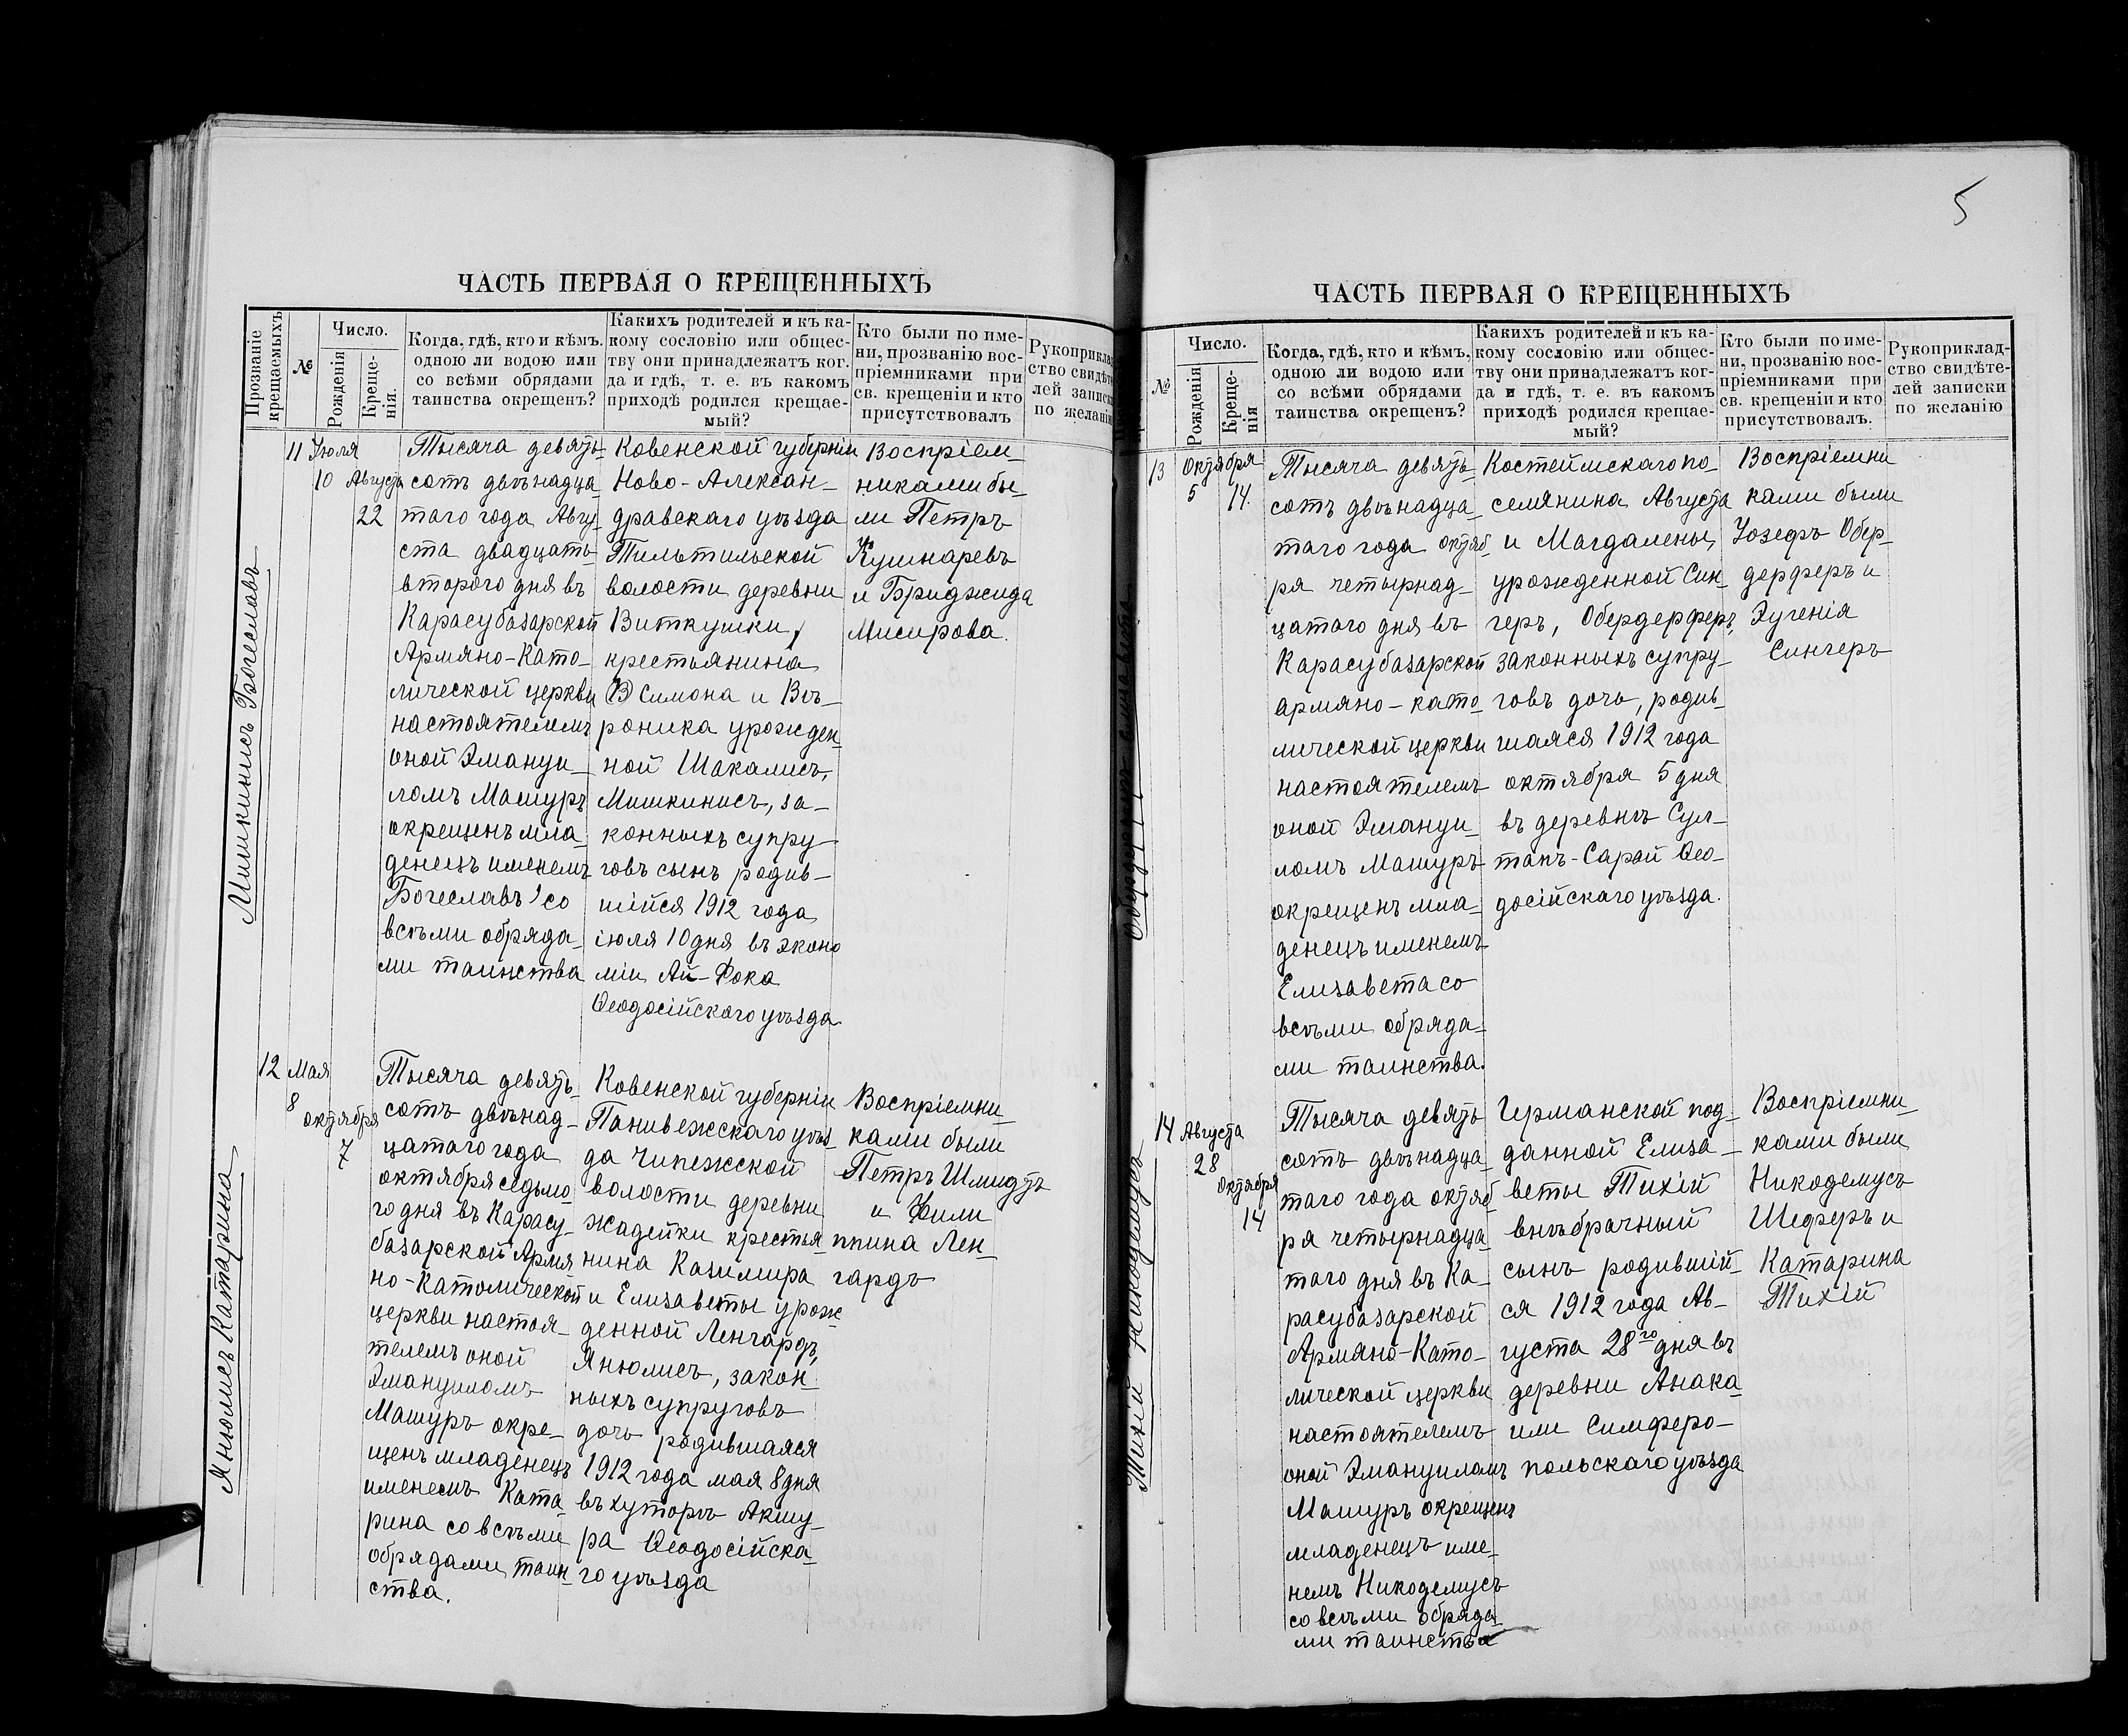 5
ЧАСТЬ ПЕРВАЯ О КРЕЩЕННЫХЪ
Прозваніе крещаемыхъ
№
Число.
Рожденія
Креще-
нія.
Когда, гдѣ, кто и кѣмъ,
одною ли водою или
со всѣми обрядами
таинства окрещенъ?
Какихъ родителей и къ ка-
кому сословію или общес-
тву они принадлежатъ ког-
да и гдѣ, т. е. въ какомъ
приходѣ родился крещае-
мый?
Кто были по име-
ни, прозванію вос-
пріемниками при
св. крещеніи и кто
присутствовалъ
Рукоприклад
ство свидѣте
лей записк
по желанію
Мишкинисъ Богеславъ
11
Іюля
10
Августа
22
Тысяча девять-
сотъ двѣнадца-
таго года Авгу-
ста двадцать
втораго дня въ
Карасубазарской
Армяно-Като-
лической церкви
настоятелемъ
оной Эмануи-
ломъ Машуръ
окрещенъ мла-
денецъ именемъ
Богеславъ со
всѣми обряда-
ми таинства
Ковенской губерніи
Ново-Алексан-
дравскаго уѣзда
Тильтильской
волости деревни
Виткушки,
крестьянина
Симона и Вѣ-
роника урожден-
ной Шакалисъ,
Мишкинисъ, за-
конныхъ супру-
говъ сынъ родив-
шійся 1912 года
іюля 10 дня въ эконо
міи Ай-Фока
Ѳеодосійскаго уѣзда.
Воспріем-
никами бы-
ли Петръ
Кушнаревъ
и Бриджида
Мисирова.
Янюлисъ Катарина
12
Мая
8
октября
7
Тысяча девять-
сотъ двѣнад-
цатаго года
октября седьмо-
го дня въ Карасу-
базарской Армя
но-Католической
церкви настоя-
телемъ оной
Эмануиломъ
Машуръ окре-
щенъ младенецъ
именемъ Ката
рина со всѣми
обрядами таин-
ства.
Ковенской губерніи
Панивежскаго уѣз-
да Чипежской
волости деревни
Жадейки крестья-
нина Казимира
и Елизаветы урож-
денной Ленгардъ,
Янюлисъ, закон-
ныхъ супруговъ
дочь родившаяся
1912 года мая 8 дня
въ хуторѣ Акшу-
ра Ѳеодосійска-
го уѣзда
Воспріемни-
ками были
Петръ Шмидтъ
и Фили
ппина Лен-
гардъ
ЧАСТЬ ПЕРВАЯ О КРЕЩЕННЫХЪ
№
Число.
Рожденія
Креще-
нія
Когда, гдѣ, кто и кѣмъ,
одною ли водою или
со всѣми обрядами
таинства окрещенъ?
Какихъ родителей и къ ка-
кому сословію или общес-
тву они принадлежатъ ког-
да и гдѣ, т. е. въ какомъ
приходѣ родился крещае-
мый?
Кто были по име-
ни, прозванію вос-
пріемниками при
св. крещеніи и кто
присутствовалъ.
Рукоприклад-
ство свидѣте-
лей записки
по желанію
Обердерферъ Елизавета
13
Октября
5
14.
Тысяча девять-
сотъ двѣнадца-
таго года октяб-
ря четырнад-
цатаго дня въ
Карасубазарской
армяно-като-
лической церкви
настоятелемъ
оной Эмануи-
ломъ Машуръ
окрещенъ мла-
денецъ именемъ
Елизавета со
всѣми обряда-
ми таинства.
Костеймскаго по-
селянина Августа
и Магдалены,
урожденной Син-
геръ, Обердерферъ,
законныхъ супру-
говъ дочь, родив-
шаяся 1912 года
октября 5 дня
въ деревнѣ Сул-
танъ-Сарай Ѳео-
досійскаго уѣзда.
Воспріемни
ками были
Іозефъ Обер-
дерферъ и
Эугенія
Сингеръ
Тихій Никодемусъ
14
Августа
28
октября
14
Тысяча девять
сотъ двѣнадца-
таго года октяб
ря четырнадца-
таго дня въ Ка-
расубазарской
Армяно-Като-
лической церкви
настоятелемъ
оной Эмануиломъ
Машуръ окрещенъ
младенецъ име-
немъ Никодемусъ
со всѣми обряда-
ми таинства
Германской под-
данной Елиза-
веты Тихій
внѣбрачный
сынъ родившій-
ся 1912 года Ав-
густа 28го дня въ
деревни Анака-
или Симферо-
польскаго уѣзда
Воспріемни-
ками были
Никодемусъ
Шеферъ и
Катарина
Тихій